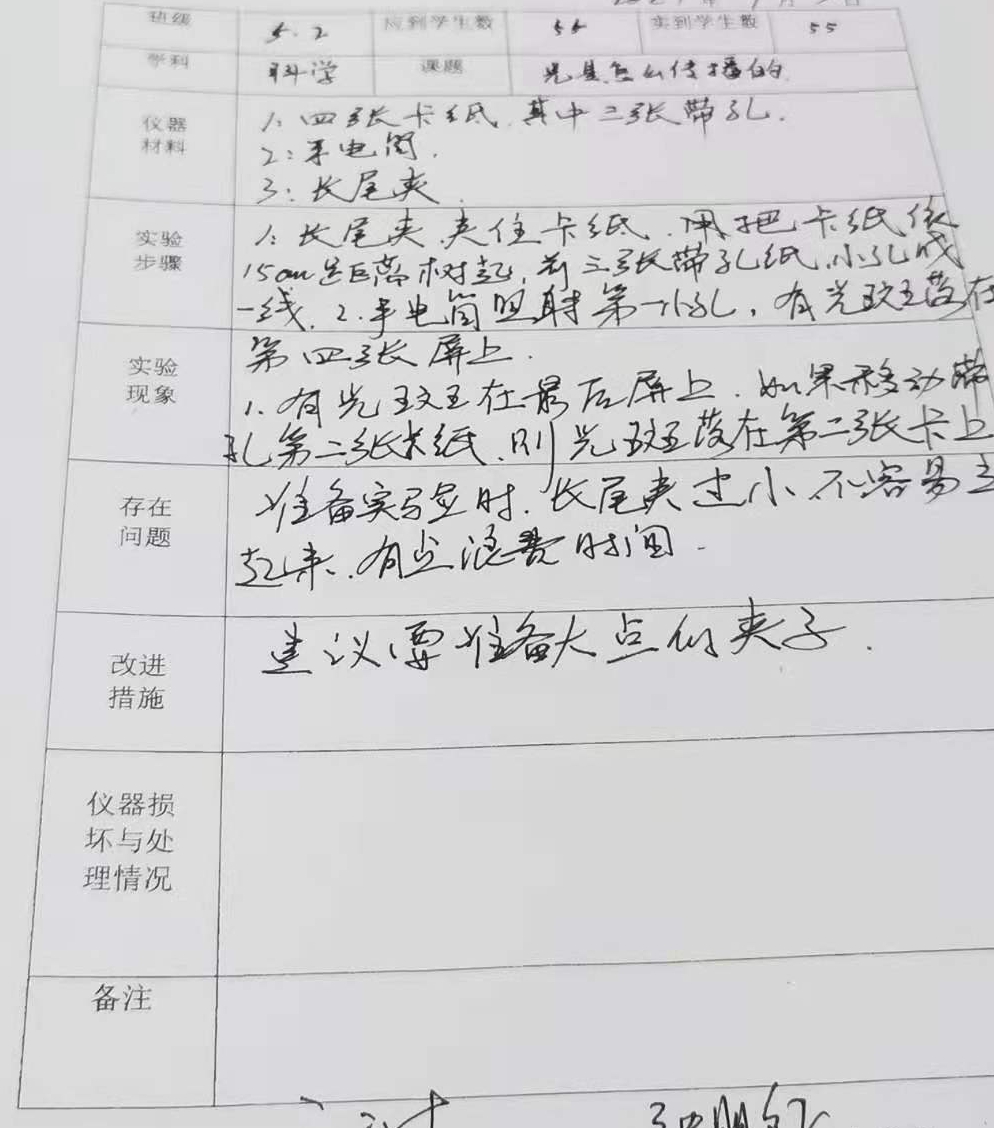 班级 5.2 应到学生数 55 实到学生数 55
学科 科学 课题 光是怎么传播的
仪器材料 1、四张卡纸，其中三张带孔.
2：手电筒.
3：长尾夹.
实验步骤 1：长尾夹夹住卡纸.用把卡纸依
15cm 距离树起，前三张带孔纸，小孔成
一线. 2.手电筒照射第一小孔，有光斑落在
第四张屏上.
实验现象 1.有光斑在最后屏上.如果移动带
孔第二张卡纸.则光斑落在第二张卡上
存在问题 准备实验时.长尾夹过小.不容易立
起来.有点浪费时间.
改进措施 建议要准备大点的夹子.
仪器损坏与处理情况
备注